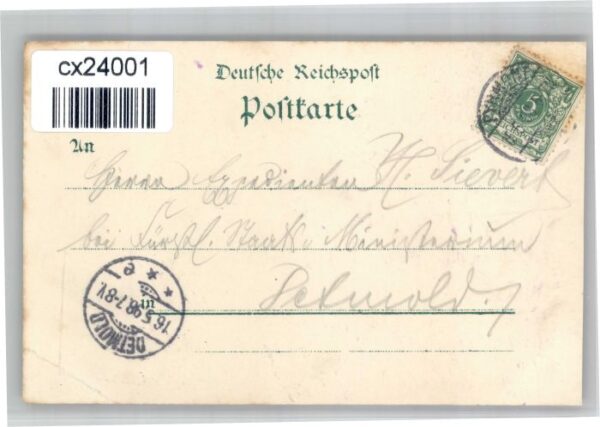 cx24001
Deutsche Reichspost
Postkarte
An
Herrn Expedienten H. Sievert
bei Fürstl. Staats-Ministerium
in Detmold.
5
DETMOLD
16.5.98.7-8V.
* e *